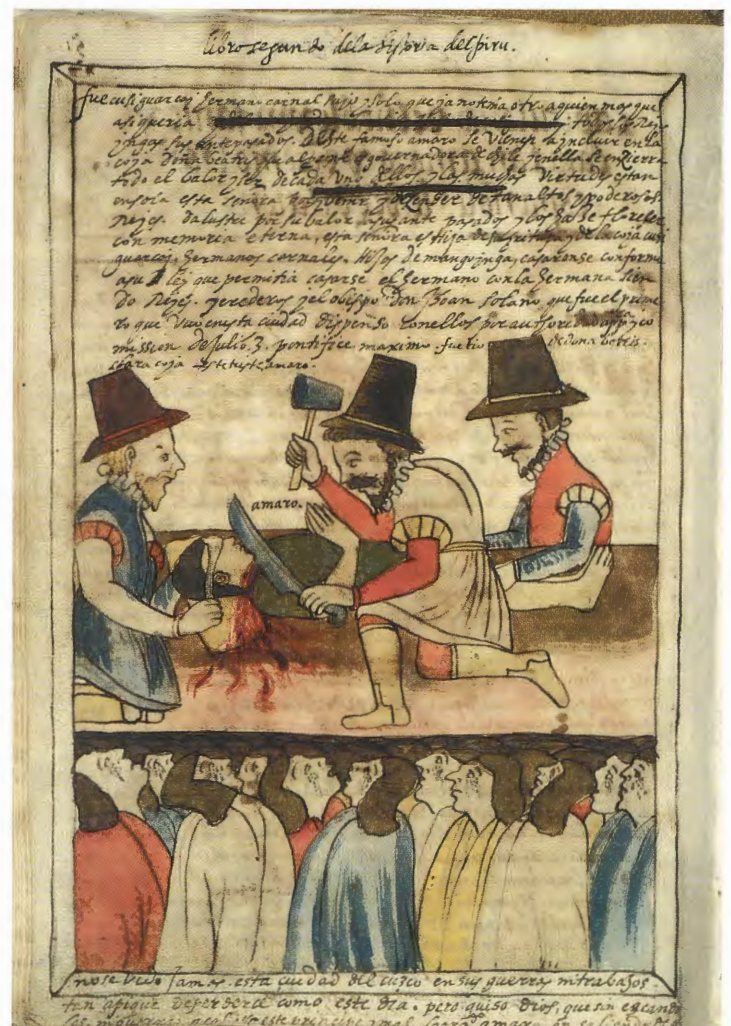 libro segundo dela historia del piru.
fue cusi guarcai hermano carnal suyo y solo que ya no tenia otro a quien mas que
asi queria y todos los Rejes
yngas sus antepasados. deste famoso amaro se viene a incluir en la
coja doña beatris gouernadora de chile y en ella se enzierra
todo el balor y ser de cada uno dellos y las muchas virtudes estan
en sola esta señora por uenir y dezender de tan altos y poderosos
Rejes. da lustre por su balor a sus ante pasados y los hase florecer
con memoria eterna, esta señora es hija de y de la coja cusi
guarcai. hermanos carnales. hijos de mango ynga, casaronse conforme
a su ley que permitia casarse el hermano con la hermana sien
do Rejes. y erederos y el obispo Don Joan solano que fue el prime
ro que vuo en esta ciudad dispenso con ellos por authoridad app^ca y co
mission de Julio. 3. pontifice maximo. fue tio de dona betris.
clara coja este amaro.
amaro.
no se vido jamas. esta ciudad del cuzco en sus guerras ni trabajos
tan a pique de perderse como este dia. pero quiso dios, que sin
este principe